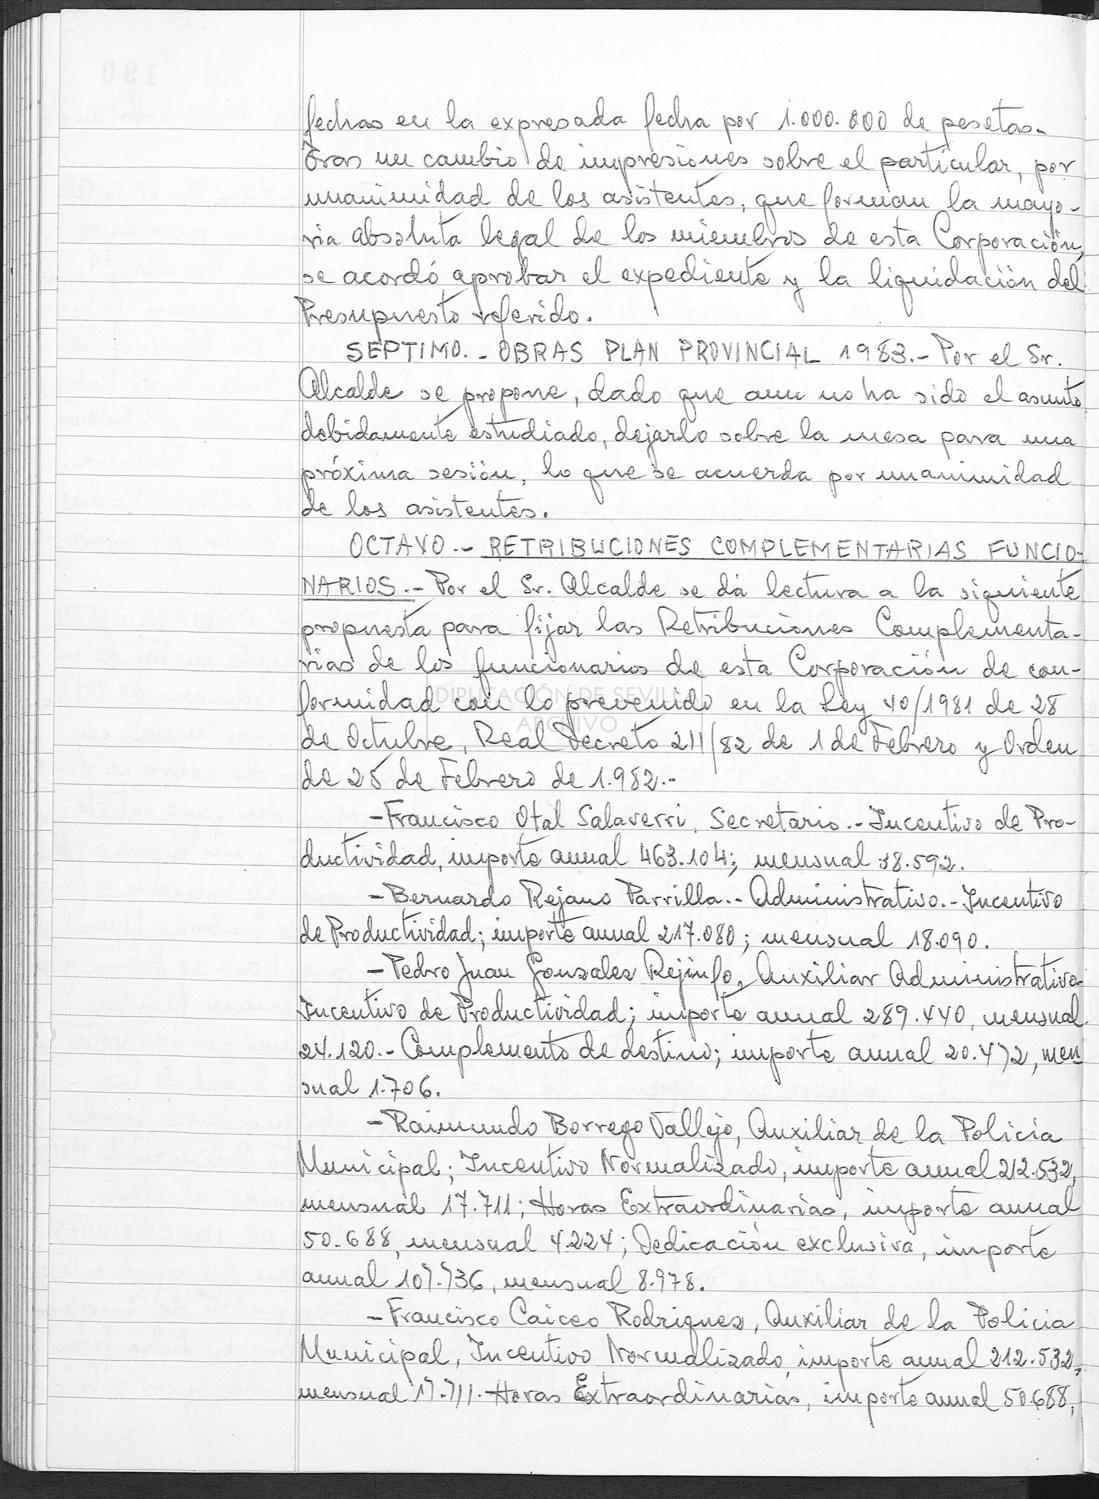 fechas en la expresada fecha por 1.000.000 de pesetas.-
Tras un cambio de impresiones sobre el particular, por
unanimidad de los asistentes, que forman la mayo-
ria absoluta legal de los miembros de esta Corporación,
se acordó aprobar el expediente y la liquidación del
Presupuesto referido.
SEPTIMO.- OBRAS PLAN PROVINCIAL 1983.- Por el Sr.
Alcalde se propone, dado que aun no ha sido el asunto
debidamente estudiado, dejarlo sobre la mesa para una
próxima sesión, lo que se acuerda por unanimidad
de los asistentes.
OCTAVO.- RETRIBUCIONES COMPLEMENTARIAS FUNCIO-
NARIOS.- Por el Sr. Alcalde se dá lectura a la siguiente
propuesta para fijar las Retribuciones Complementa-
rias de los funcionarios de esta Corporación de con-
formidad con lo prevenido en la Ley 40/1981 de 28
DIPUTACIÓN DE SEVILLA
ARCHIVO
de Octubre, Real Decreto 211/82 de 1 de Febrero y Orden
de 25 de Febrero de 1.982.-
-Francisco Otal Salaverri, Secretario.- Incentivo de Pro-
ductividad, importe anual 463.104; mensual 38.592.
-Bernardo Rejano Parrilla.- Administrativo.- Incentivo
de Productividad; importe anual 217.080; mensual 18.090.
-Pedro Juan Gonzales Rejinfo, Auxiliar Administrativo-
Incentivo de Productividad; importe anual 289.440, mensual
24.120.- Complemento de destino; importe anual 20.472, men
sual 1.706.
-Raimundo Borrego Vallejo, Auxiliar de la Policia
Municipal; Incentivo Normalizado, importe anual 212.532,
mensual 17.711; Horas Extraordinarias, importe anual
50.688, mensual 4.224; Dedicación exclusiva, importe
anual 107.736, mensual 8.978.
-Francisco Caiceo Rodriguez, Auxiliar de la Policia
Municipal, Incentivo Normalizado, importe anual 212.532,
mensual 17.711. Horas Extraordinarias, importe anual 50.688,